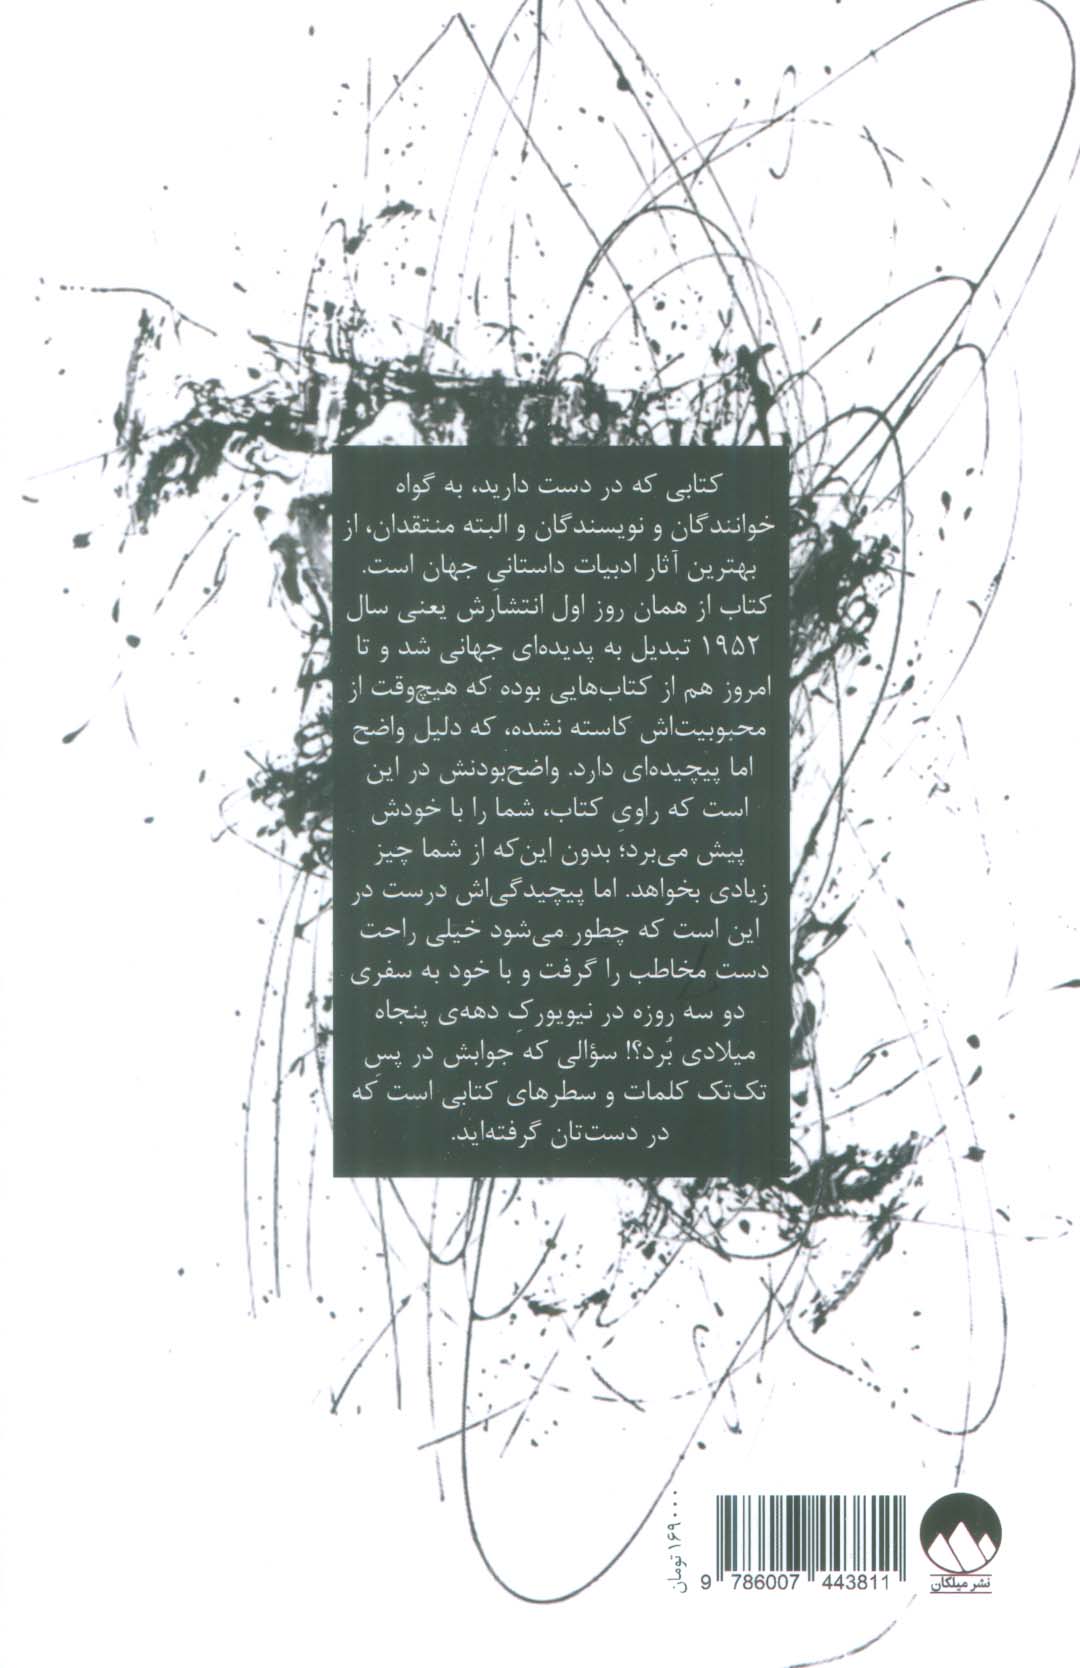 کتابی که در دست دارید، به گواه
خوانندگان و نویسندگان و البته منتقدان، از
بهترین آثار ادبیات داستانیِ جهان است.
کتاب از همان روز اول انتشارش یعنی سال
۱۹۵۲ تبدیل به پدیده‌ای جهانی شد و تا
امروز هم از کتاب‌هایی بوده که هیچ‌وقت از
محبوبیت‌اش کاسته نشده، که دلیل واضح
اما پیچیده‌ای دارد. واضح‌بودنش در این
است که راویِ کتاب، شما را با خودش
پیش می‌برد؛ بدون این‌که از شما چیز
زیادی بخواهد. اما پیچیدگی‌اش درست در
این است که چطور می‌شود خیلی راحت
دست مخاطب را گرفت و با خود به سفری
دو سه روزه در نیویورکِ دهه‌ی پنجاه
میلادی بُرد؟! سؤالی که جوابش در پسِ
تک‌تک کلمات و سطرهای کتابی است که
در دست‌تان گرفته‌اید.
۱۶۹۰۰۰ تومان
9 786007 443811
نشر میلکان